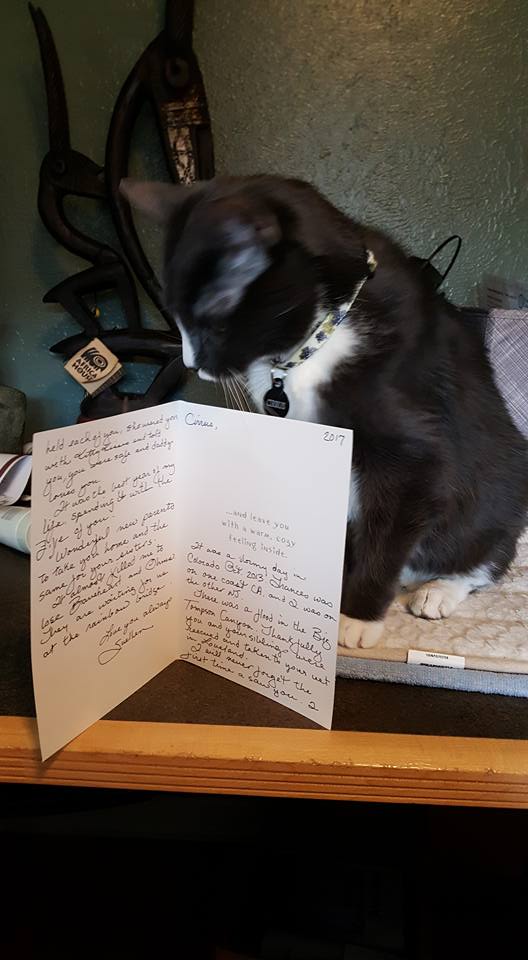 Cirrus,
2017
...and leave you
with a warm, cozy
feeling inside.
It was a stormy day in
Colorado 2013! Frances was
on one coast CA, and I was on
the other NJ.
There was a flood in the Big
Tompson Canyon. Thankfully
you and your siblings were
rescued and taken to your vet
in Loveland.
I will never forget the
first time I saw you. I
held each of you, showered you
with kitty kisses and told
you, you were safe and daddy
loves you.
It was the best year of my
life, spending it with the
of you.
Wonderful new parents
to take you home and the
same for your sisters!
It almost killed me to
lose and
They are waiting for us
at the rainbow bridge.
Love you always
AFRICA